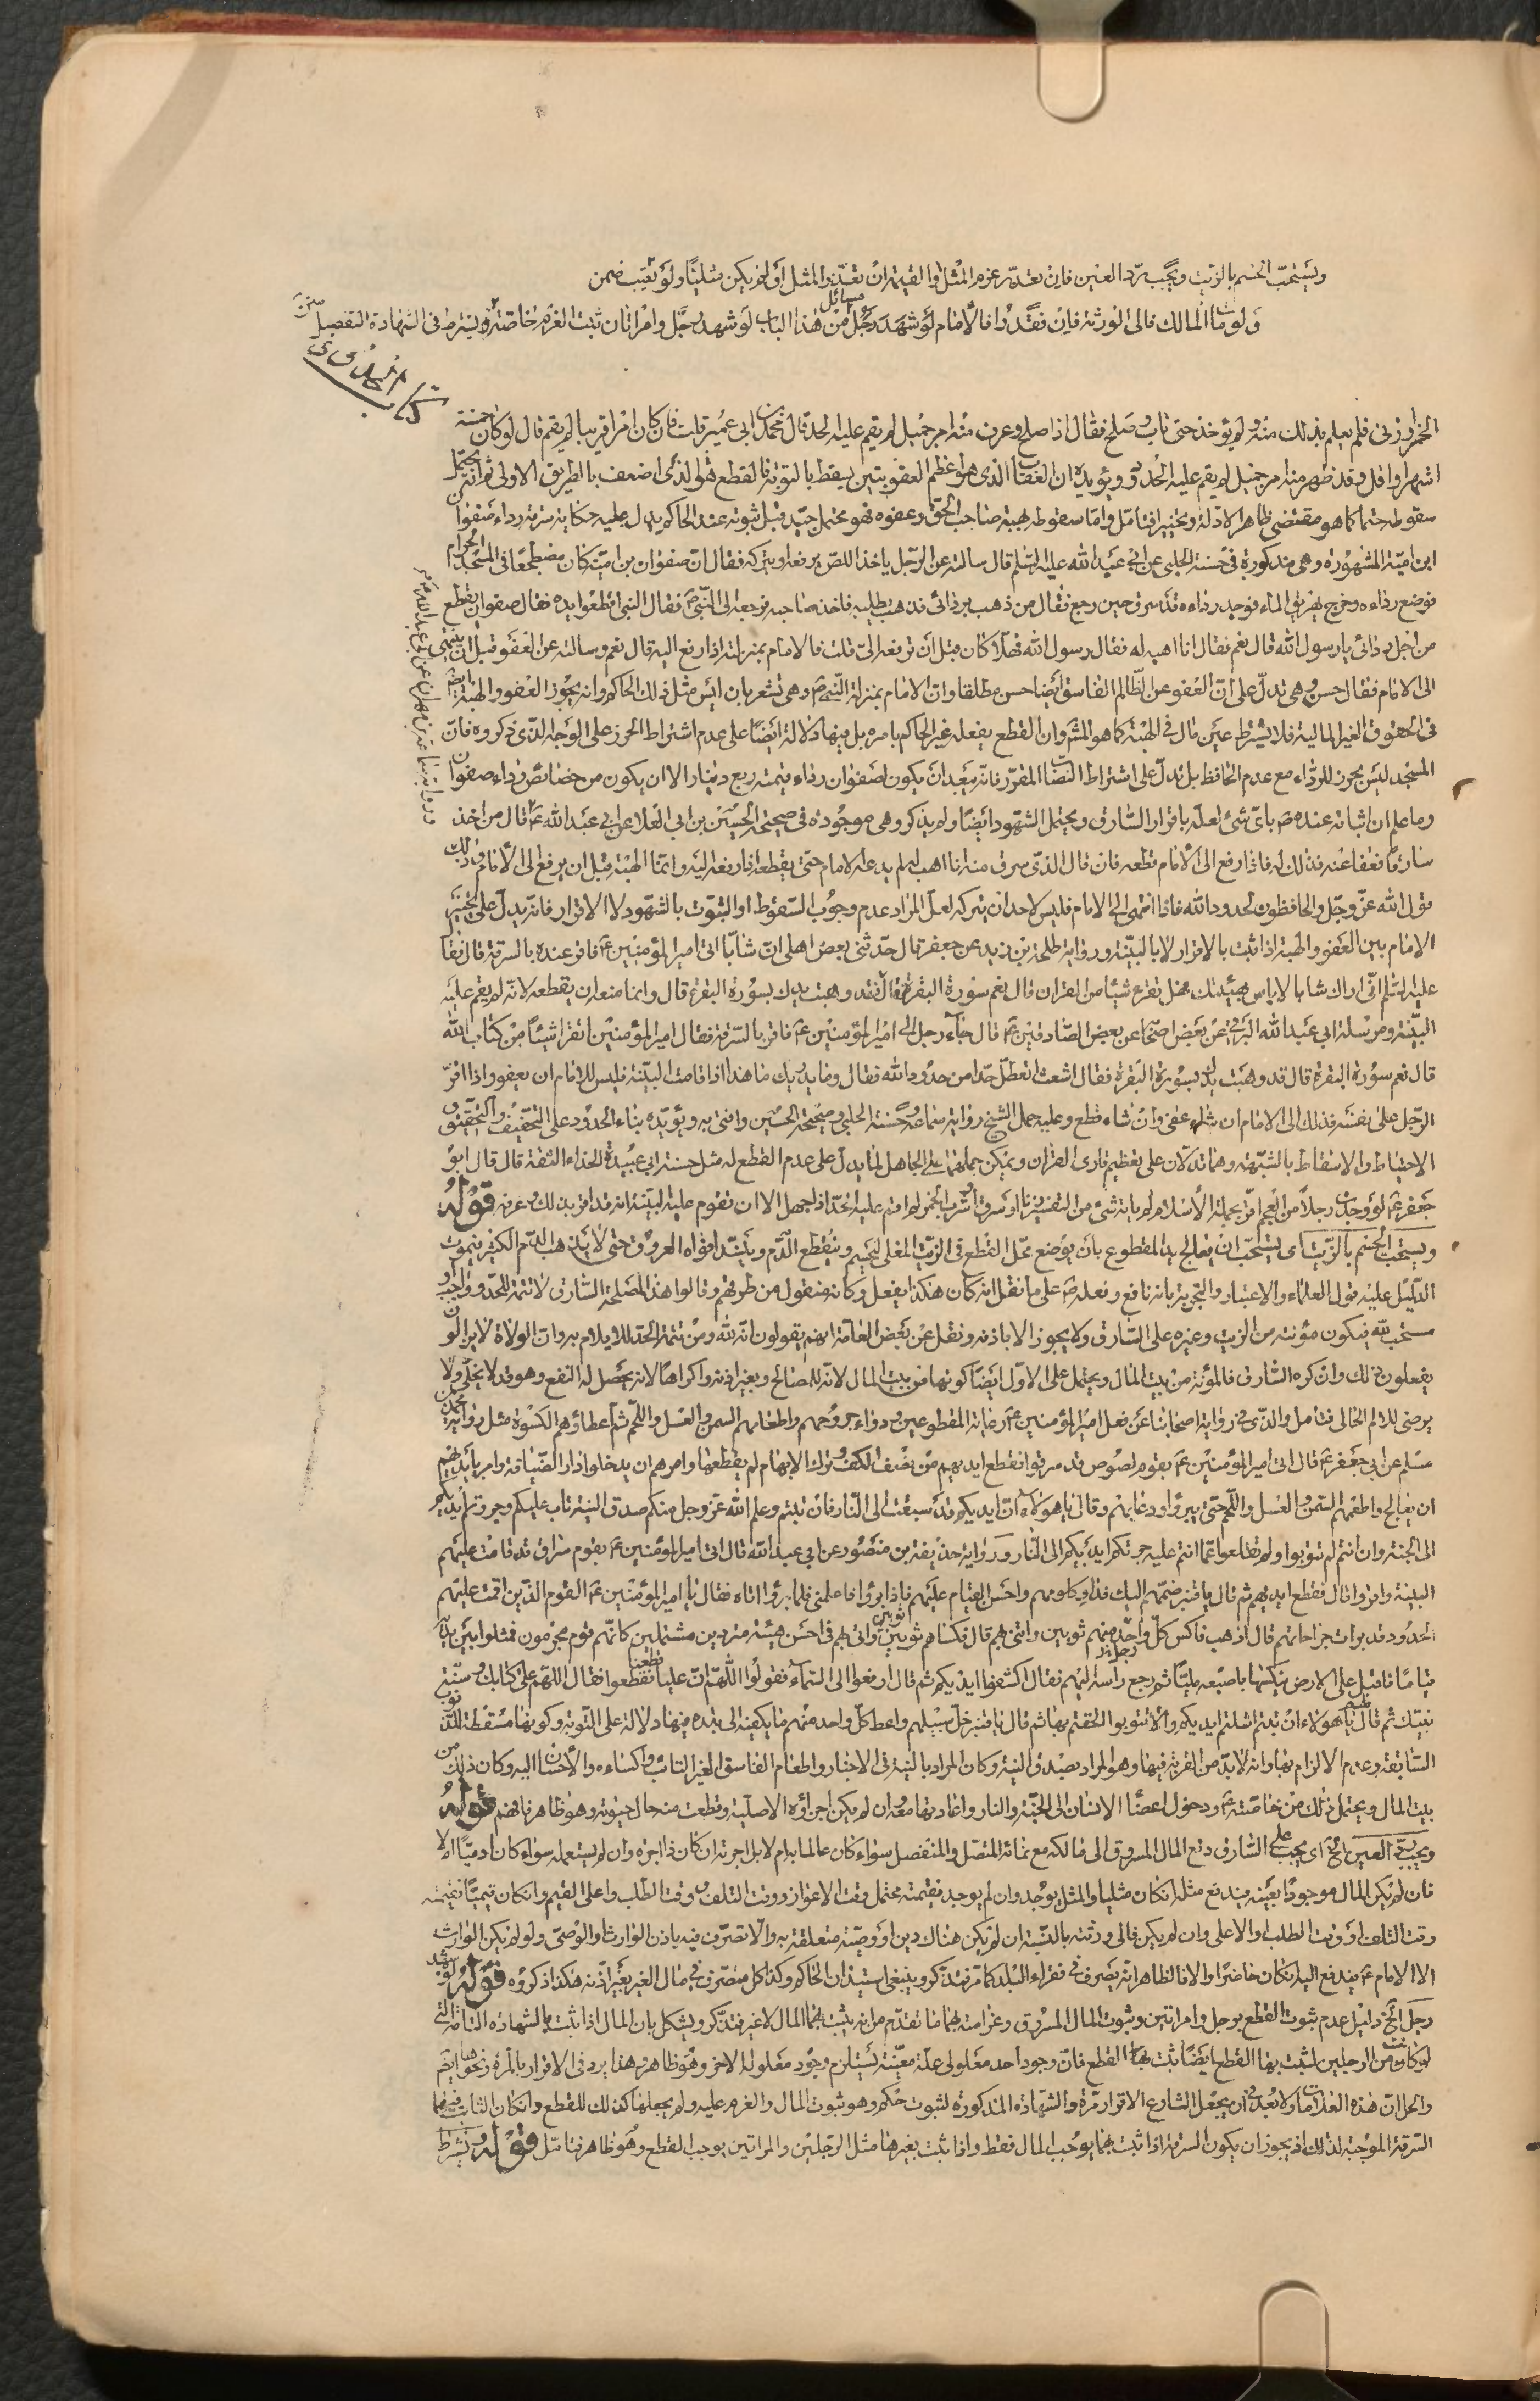 ويستحبّ الحسم بالزيت ويجب ردّ العين فان تعذّر غرم المثل او القيمة ان تعذّر المثل او لم يكن مثليّا ولو تعيّب ضمن
ولو مات المالك فالى الورثة فان فقدوا فالامام مسائل من هذا الباب لو شهد رجل وامراتان ثبت الغرم خاصّة ويشترط في الشهادة التفصيل
كتاب الحدود
الخمر او زنى فلم يعلم بذلك منه ولم يؤخذ حتى تاب وصلح فقال اذا صلح وعرف منه امر جميل لم يقم عليه الحد قال محمد بن ابى عمير قلت فان كان امرا قريبا لم يقم قال لو كان خمسة
اشهر او اقل وقد ظهر منه امر جميل لم يقم عليه الحدود ويؤيده ان العقاب الذى هو اعظم العقوبتين يسقط بالتوبة فالقطع هو الذى اضعف بالطريق الاولى ثم انه يحتمل
سقوطه حتما كما هو مقتضى ظاهر الادلة وتخييرا فتامل وامّا سقوطه بهبة صاحب الحق وعفوه فهو محتمل جيّد قبل ثبوته عند الحاكم يدل عليه حكاية سرقة رداء صفوان
ابن اميّة المشهورة وهى مذكورة في حسنة الحلبى عن ابى عبد الله عليه السّلم قال سالته عن الرّجل ياخذ اللص يرفعه او يتركه فقال انّ صفوان بن اميّة كان مضطجعا في المسجد الحرام
فوضع رداءه وخرج يهريق الماء فوجد رداءه قد سرق حين رجع فقال من ذهب بردائى فذهب يطلبه فاخذ صاحبه فرفعه الى النّبىّ ص فقال النبى اقطعوا يده فقال صفوان يقطع
من اجل ردائى يا رسول الله قال نعم فقال انا اهبه له فقال رسول الله فهلّا كان قبل ان ترفعه الىّ قلت فالامام بمنزلته اذا رفع اليه قال نعم وسالته عن العفو قبل ان ينتهى
الى الامام فقال حسن وهى تدلّ على انّ العفو عن الظّالم الفاسق ايضا حسن مطلقا وانّ الامام بمنزلة النّبىّ ص وهى تشعر بان ليس مثل ذلك الحاكم وانه يجوز العفو والهبة ايضا
في الحقوق الغير الماليّة فلا يشترط عين مال في الهبة كما هو المشهور وان القطع يفعله غير الحاكم بامره بل فيها دلالة ايضا على عدم اشتراط الحرز على الوجه الذى ذكروه فانّ
المسجد ليس بحرز للرداء مع عدم الحافظ بل تدلّ على اشتراط النصاب المقرّر فانّه يبعد ان يكون لصفوان رداء قيمته ربع دينار الا ان يكون من خصائص رداء صفوان
وما علم ان اثباته عنده ص باىّ شئ لعلّه باقرار السّارق ويحتمل الشهود ايضا ولم يذكر وهى موجودة في صحيحة الحسين بن ابى العلا عن ابى عبد الله ع قال من اخذ
سارقا فعفا عنه فذلك له فاذا رفع الى الامام قطعه فان قال الذى سرق منه انا اهب له لم يدعه الامام حتى يقطعه اذا رفعه اليه وانّما الهبة قبل ان يرفع الى الامام وذلك
قول الله عزّ وجلّ والحافظون لحدود الله فاذا انتهى الى الامام فليس لاحد ان يتركه لعلّ المراد عدم وجوب السّقوط او الثبوت بالشهود لا الاقرار فانّه يدلّ على تخيير
الامام بين العفو والهبة اذا ثبت بالاقرار لا بالبيّنة ورواية طلحة بن زيد عن جعفر قال حدّثنى بعض اهلى انّ شابّا اتى امير المؤمنين ع فاقرّ عنده بالسرقة قال فقال
عليه السّلم انّى اراك شابا لا باس بهيئتك فهل تقرء شيئا من القران قال نعم سورة البقرة فقال فقد وهبت يدك بسورة البقرة قال وانما منعه ان يقطعه لانّه لم يقم عليه
البيّنة ومرسلة ابى عبد الله البرقى عن بعض اصحابه عن بعض الصّادقين ع قال جاء رجل الى امير المؤمنين ع فاقر بالسّرقة فقال امير المؤمنين اتقرا شيئا من كتاب الله
قال نعم سورة البقرة قال قد وهبت يدك بسورة البقرة فقال اشعث اتعطّل حّدا من حدود الله فقال وما يدريك ما هذا اذا قامت البيّنة فليس للامام ان يعفو واذا اقرّ
الرّجل على نفسه فذلك الى الامام ان شاء عفى وان شاء قطع وعليه حمل الشيخ رواية سماعة وحسنة الحلبى وصحيحة الحسين وافتى به ويؤيّده بناء الحدود على التخفيف والتحقيق و
الاحتياط والاسقاط بالشبهة وهما تدلان على تعظيم قارى القران ويمكن حملهما على الجاهل لما يدل على عدم القطع له مثل حسنة ابى عبيدة الحذاء الثقة قال قال ابو
جعفر ع لو وجدت رجلا من العجم اقرّ بجملة الاسلام لم ياته شئ من التفسير زنا او سرق او شرب الخمر لم اقم عليه الحدّ اذا جهل الا ان تقوم عليه البيّنة انه قد اقر بذلك وعرفه قوله
ويستحبّ الحسم بالزيت اى يستحبّ ان يعالج يد المقطوع بان يوضع محلّ القطع في الزّيت المغلى لينحسم وينقطع الدّم وينسدّ افواه العروق حتى لا يذهب الدّم الكثير فيموت
الدّليل عليه قول العلماء والاعتبار والتجربة بانه نافع وفعله ص على ما نقل انه كان هكذا يفعل وكانه منقول من طرقهم وقالوا هذا لمصلحة السّارق لا تتمّة للحدّ وواجب او
مستحب للّه فيكون مؤنته من الزيت وغيره على السّارق ولا يجوز الا باذنه ونقل عن بعض العامّة انهم يقولون انّه للّه ومن تتمّة الحد لئلا يلام به وانّ الولاة لا يزالون
يفعلون ذلك وان كره السّارق فالمؤنة من بيت المال ويحتمل على الاوّل ايضا كونها من بيت المال لانّه للمصالح وبغير اذنه واكراها لانه يحصل له النفع وهو قد لا يخلى ولا
يرضى للالم الحالى فتامل والذى في رواية اصحابنا عن فعل امير المؤمنين ع رعاية المقطوعين ودواء جروحهم واطعامهم السمن والعسل واللّحم ثم اعطاؤهم الكسوة مثل رواية محمد بن
مسلم عن ابى جعفر ع قال اتى امير المؤمنين ع بقوم لصوص قد سرقوا فقطع ايديهم من نصف الكف وترك الابهام لم يقطعها وامرهم ان يدخلوا دار الضّيافة وامر بايديهم
ان يعالج واطعمهم السّمن والعسل واللّحم حتى يبرؤا ودعا بهم وقال يا هؤلاء انّ ايديكم قد سبقت الى النّار فان تبتم وعلم الله عزّ وجل منكم صدق النية تاب عليكم وجررتم ايديكم
الى الجنة وان انتم لم تتوبوا ولم تقلعوا عمّا انتم عليه جرتكم ايديكم الى النّار ورواية حذيفة بن منصور عن ابى عبد الله قال اتى امير المؤمنين ع بقوم سراق قد قامت عليهم
البيّنة واقروا قال فقطع ايديهم ثم قال يا قنبر ضمّهم اليك فداو كلومهم واحسن القيام عليهم فاذا برؤا فاعلمنى فلما برؤا اتاه فقال يا امير المؤمنين ع القوم الذين اقمت عليهم
الحدود قد برات جراحاتهم قال اذهب فاكس كلّ واحد منهم ثوبين وائتنى بهم قال فكساهم ثوبين ثوبين واتى بهم في احسن هيئة متردين مشتملين كانّهم قوم محرمون فمثلوا بين يديه
قياما فاقبل على الارض ينكتها باصبعه مليّا ثم رجع راسه اليهم فقال اكشفوا ايديكم ثم قال ارفعوا الى السّماء فقولوا اللّهمّ انّ عليا قطعنا ففعلوا فقال اللّهمّ على كتابك وسنّة
نبيّك ثم قال لهم يا هؤلاء ان تبتم استلمتم ايديكم وألا تتوبوا الحقتم بها ثم قال يا قنبر خلّ سبيلهم واعط كلّ واحد منهم ما يكفيه الى بلده فيها دلالة على التوبة وكونها مسقطة للذنوب
السّابقة وعدم الالزام بها وانه لا بدّ من القربة فيها وهو المراد بصدق النية وكان المراد بالنيّة في الاخبار واطعام الفاسق الغير التائب واكساءه والاحسان اليه وكان ذلك من
بيت المال ويحتمل ذلك من خاصّته ع ودخول اعضاء الانسان الى الجنّة والنار واعادتها معه وان لم يكن اجزاؤه الاصليّة وقطعت منه حال حيوته وهو ظاهر فافهم قوله
ويجب ردّ العين الخ اى يجب على السّارق دفع المال المسروق الى مالكه مع نمائه المتّصل والمنفصل سواء كان عالما به ام لا بل اجرته ان كان ذا اجرة وان لم يستعمله سواء كان ادميّا ام لا
فان لم يكن المال موجودا بعينه فيدفع مثله ان كان مثليا والمثل يوجد وان لم يوجد فقيمته محتمل وقت الاعواز ووقت التلف ووقت الطّلب واعلى القيم وان كان قيميّا فقيمته
وقت التلف او وقت الطلب او الاعلى وان لم يكن فالى ورثته بالنسبة ان لم يكن هناك دين او وصيّة متعلقة به والا تصرّف فيه باذن الوارث او الوصىّ ولو لم يكن الوارث
الا الامام ع فيدفع اليه ان كان حاضرا والا فالظاهر انّه يصرف في فقراء البلد كما مرّ فتذكر وينبغى استيذان الحاكم وكذا كل متصرّف في مال الغير بغير اذنه هكذا ذكروه قوله لو شهد
رجل الخ دليل عدم ثبوت القطع برجل وامراتين وثبوت المال المسروق وغرامته بهما ما تقدّم من انه يثبت بهما المال لا غير فتذكر ويشكل بان المال اذا ثبت بالشهادة التامّة التى
لو كانت من الرجلين لثبت بها القطع ايضا ثبت بها القطع فانّ وجود احد معلولى علّة معيّنة يستلزم وجود معلولها الاخر وهو ظاهر وهذا يرد في الاقرار بالمرة ونحوها ايضا
والحل انّ هذه العلامات ولا بعد في ان يجعل الشارع الاقرار مرّة والشهادة المذكورة لثبوت حكم وهو ثبوت المال والغرم عليه ولم يجعلها كذلك للقطع وان كان الثابت فيهما
السّرقة الموجبة لذلك اذ يجوز ان يكون السرقة اذا ثبت بهما يوجب المال فقط واذا ثبت بغيرهما مثل الرّجلين والمراتين يوجب القطع وهو ظاهر فتامّل قوله ويشترط